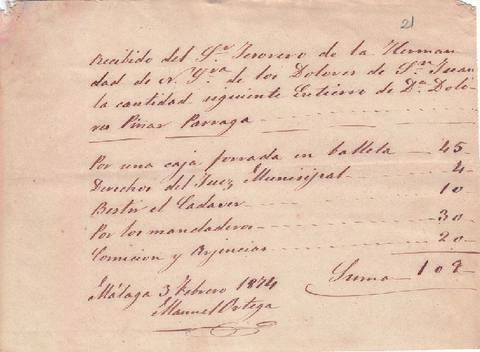 21
Recibido del Sr. Tesorero de la Herman
dad de N. Sra de los Dolores de Sn Juan
la cantidad siguiente Entierro de Da. Dolo
res Piñar Parraga
Por una caja forrada en balleta 45
Derechos del Juez Municipal 4
Bestir el Cadaver 10
Por los mandaderos 30
Comicion y Agencias 20
Suma 109
Málaga 3 Febrero 1874
Manuel Ortega